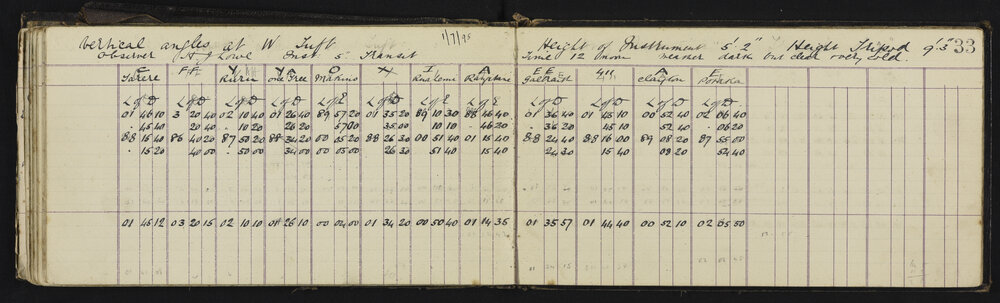 Vertical angles at W Tuft 1/7/95 Height of Instrument 5'.2" Height Tripod 9'.3" 33
Observer A J Lowe Inst 5" Transit Time 12 noon weather dark but clear & very cold.
C FA Y A O X I A EE 411 A E
Rikiriri One Tree Makino Galbraith Clayton Poraka
L of D L of D L of D L of E L of D L of E L of E L of D L of D L of D L of D
01 46 10 3 20 40 02 10 40 01 26 40 89 57 20 01 35 20 89 10 30 88 46 40 01 36 40 01 45 10 00 52 40 02 06 40
45 40 20 40 10 20 26 20 57 00 35 00 10 10 46 20 36 20 45 10 52 40 06 20
88 15 40 86 40 20 87 50 20 88 34 20 00 05 20 88 26 30 00 51 40 01 15 40 88 24 40 88 16 00 89 08 20 87 55 00
15 20 40 00 50 00 34 00 00 05 00 26 30 51 40 15 40 24 30 15 40 08 20 54 40
01 45 12 03 20 15 02 10 10 01 26 10 00 04 00 01 34 20 00 50 40 01 14 35 01 35 57 01 44 40 00 52 10 02 05 50